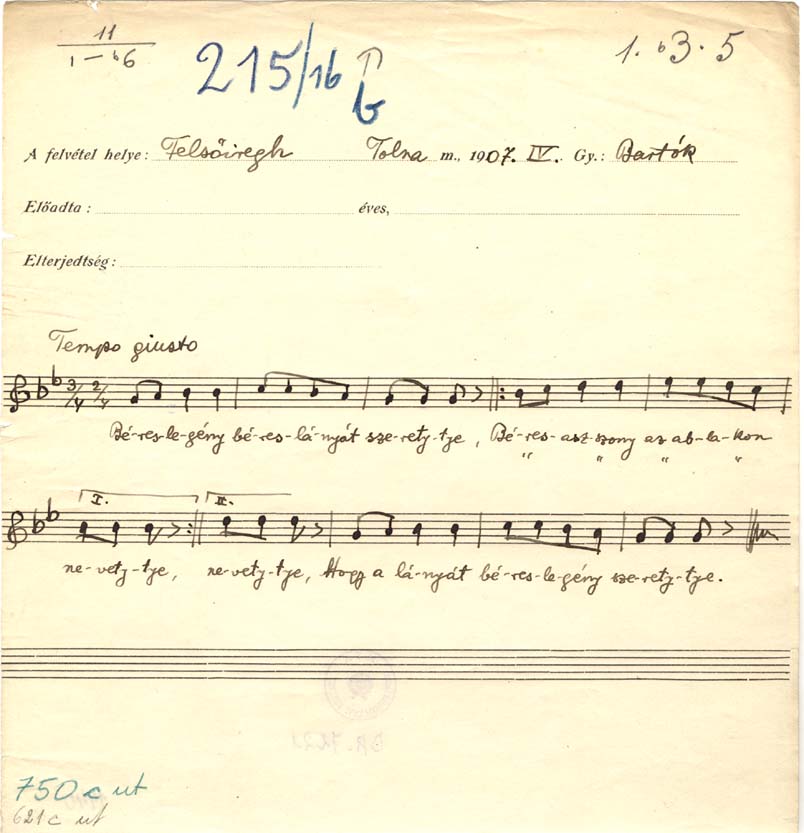 11
1 – ♭6
215/16
1. ♭3. 5
A felvétel helye: Felsőiregh Tolna m., 1907. IV. Gy.: Bartók
Előadta: éves,
Elterjedtség:
Tempo giusto
3/4 2/4
Bé-res-le-gény bé-res-lá-nyát sze-rety-tye, Bé-res-asz-szony az ab-la-kon
" " " "
I. II.
ne-vety-tye, ne-vety-tye, Hogy a lá-nyát bé-res-le-gény sze-rety-tye.
750 c ut
621c ut